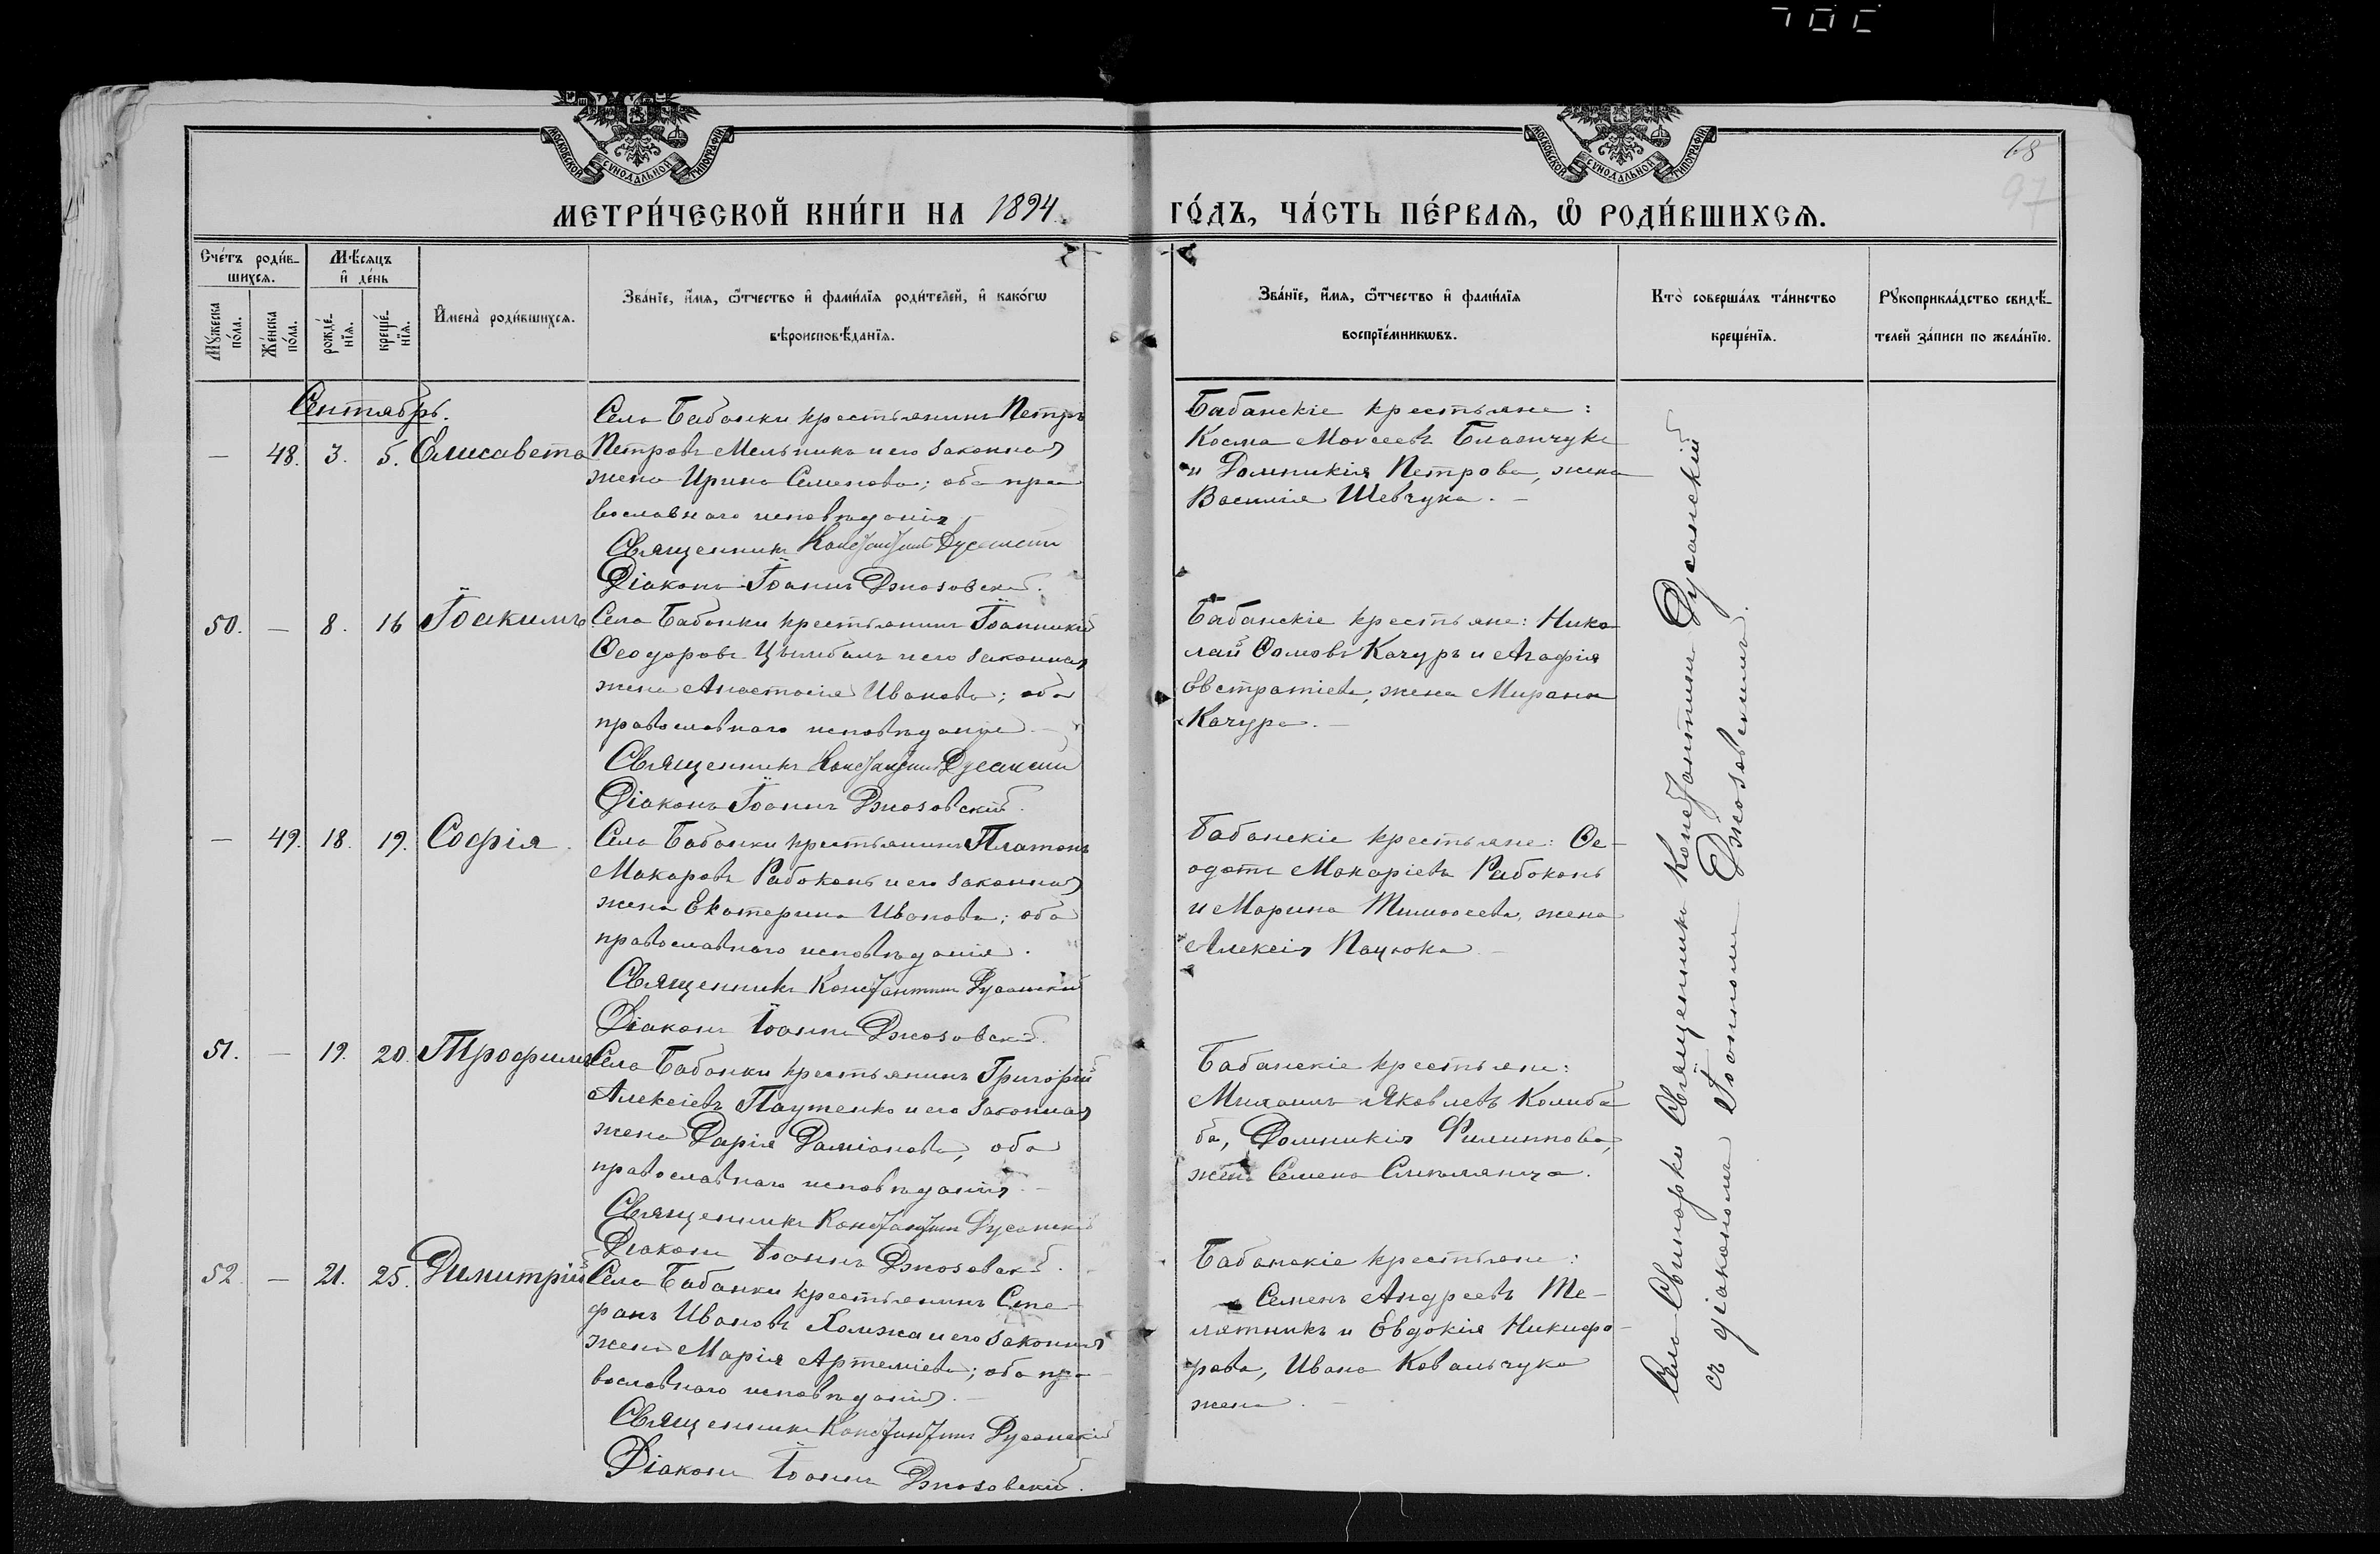 68
97
МОСКОВСКОЙ СУНОДАЛЬНОЙ ТИПОГРАФІИ
МОСКОВСКОЙ СУНОДАЛЬНОЙ ТИПОГРАФІИ
МЕТРИ́ЧЕСКОЙ КНИ́ГИ НА 1894
ГО́ДЪ, ЧА́СТЬ ПЕ́РВАѦ, Ѡ҆ РОДИ́ВШИХСѦ.
Сче́тъ роди́в-
шихсѧ.
Мꙋжеска по́ла.
Же́нска по́ла.
Мѣ́сяцъ
и҆ де́нь
рожде́-
нїѧ.
креще́-
нїѧ.
И҆мена̀ роди́вшихсѧ.
Зва́нїе, и҆́мѧ, ѻ҆́тчество и҆ фами́лїѧ роди́телей, и҆ како́гѡ
вѣроисповѣ́данїѧ.
Зва́нїе, и҆́мѧ, ѻ҆́тчество и҆ фами́лїѧ
воспрїе́мникѡвъ.
Кто̀ соверша́лъ та́инство
креще́нїѧ.
Рꙋкоприкла́дство свидѣ́-
телей за́писи по жела́нїю.
Сентябрь.
— 48. 3. 5. Елисавета
Села Бабанки крестьянинъ Петръ
Петровъ Мельникъ и его законная
жена Ирина Семенова; оба пра
вославнаго исповѣданія
Священникъ Константинъ Дусанскій
Діаконъ Іоаннъ Джозовскій.
Бабанскіе крестьяне:
Косма Моисеевъ
и Домникія Петрова, жена
Василія Шевчука. —
50. — 8. 16 Іоакимъ
Села Бабанки крестьянинъ Іоанникій
Ѳеодоровъ Цымбалъ и его законная
жена Анастасія Иванова; оба
православнаго исповѣданія —
Священникъ Константинъ Дусанскій
Діаконъ Іоаннъ Джозовскій.
Бабанскіе крестьяне: Нико
лай Ѳомовъ Качуръ и Агафія
Евстратіева, жена Мирона
Качура. —
— 49. 18. 19. Софія.
Села Бабанки крестьянинъ Платонъ
Макаровъ Рабоконь и его законная
жена Екатерина Иванова; оба
православнаго исповѣданія.
Священникъ Константинъ Дусанскій
Діаконъ Іоаннъ Джозовскій.
Бабанскіе крестьяне: Ѳе-
одотъ Макаріевъ Рабоконь
и Марина Тимоѳеева, жена
Алексія Пацюка —
51. — 19. 20. Трофимъ
Села Бабанки крестьянинъ Григорій
Алексіевъ Паутенко и его законная
жена Дарія Даміанова, оба
православнаго исповѣданія. —
Священникъ Константинъ Дусанскій
Діаконъ Іоаннъ Джозовскій.
Бабанскіе крестьяне:
Михаилъ Яковлевъ Колиба
ба, Домникія Филиппова,
жена Семена
52 — 21. 25. Димитрій
Села Бабанки крестьянинъ Сте-
фанъ Ивановъ Хомжа и его законная
жена Марія Артеміева; оба пра-
вославнаго исповѣданія. —
Священникъ Константинъ Дусанскій
Діаконъ Іоаннъ Джозовскій.
Бабанскіе крестьяне:
Семенъ Андреевъ Те-
лятникъ и Евдокія Никифо-
рова, Ивана Ковальчука
жена. —
Села Свинарки Священникъ Константинъ Дусанскій
съ діакономъ Іоанномъ Джозовскимъ.